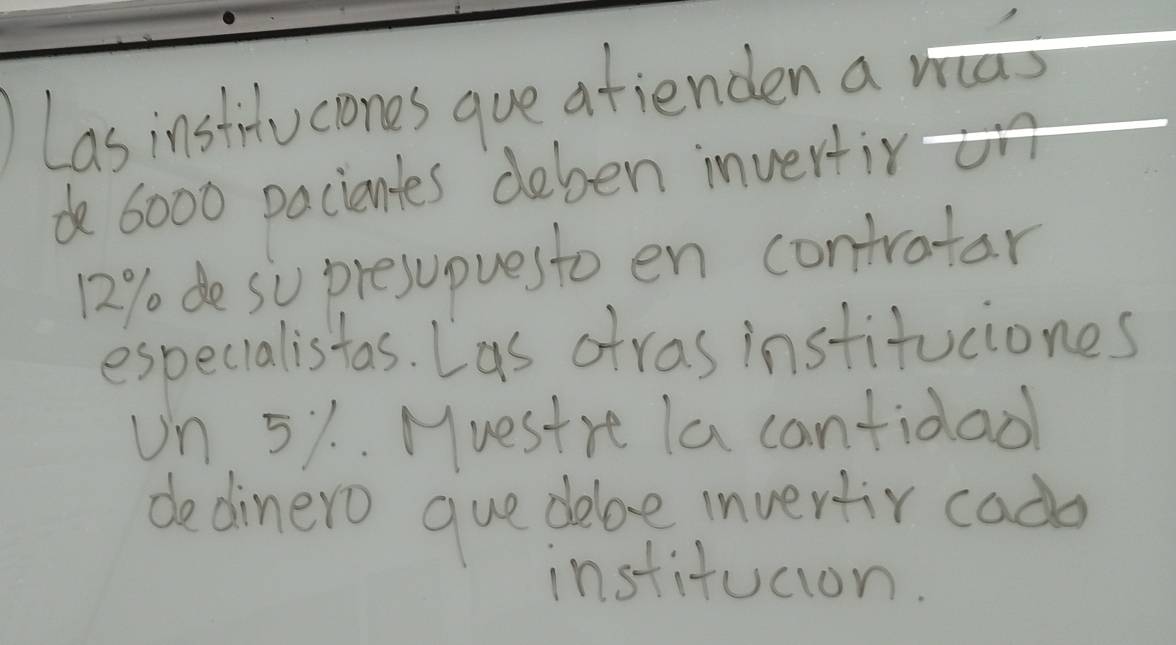 ) Las instituciones que atienden a más
de 6000 pacientes deben invertir un
12% de su presupuesto en contratar
especialistas. Las otras instituciones
Un 5%. Muestre la cantidad
de dinero que debe invertir cada
institucion.